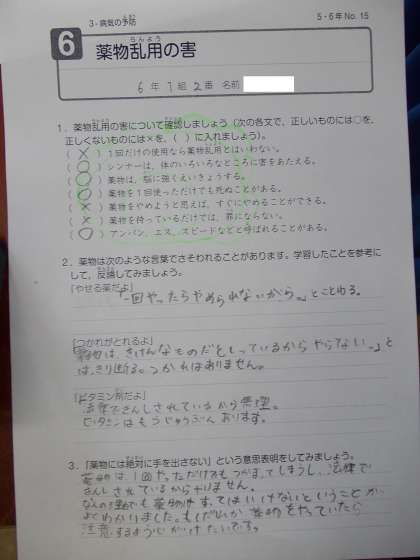 3-病気の予防
5・6年 No. 15
6
らんよう
薬物乱用の害
6年 1組 2番 名前
1．薬物乱用の害について確認しましょう（次の各文で、正しいものには○を、
正しくないものには×を、（ ）に入れましょう）。
（×）1回だけの使用なら薬物乱用とはいわない。
（○）シンナーは、体のいろいろなところに害をあたえる。
（○）薬物は、脳に強くえいきょうする。
（○）薬物を1回使っただけでも死ぬことがある。
（×）薬物をやめようと思えば、すぐにやめることができる。
（×）薬物を持っているだけでは、罪にならない。
（○）アンパン、エス、スピードなどと呼ばれることがある。
2．薬物は次のような言葉でさそわれることがあります。学習したことを参考に
して、反論してみましょう。
「やせる薬だよ」
「一回やったらやめられないから。」とことわる。
「つかれがとれるよ」
「薬物は、きけんなものだとしっているからやらない。」と
はっきり断る。つかれはありません。
「ビタミン剤だよ」
法律できんしされているから無理。
ビタミンはもうじゅうぶんあります。
3．「薬物には絶対に手を出さない」という意思表明をしてみましょう。
薬物は、1回やっただけでもつかまってしまうし、法律で
きんしされているからやりません。
薬物をやっていたら
注意するよう心がけたいです。